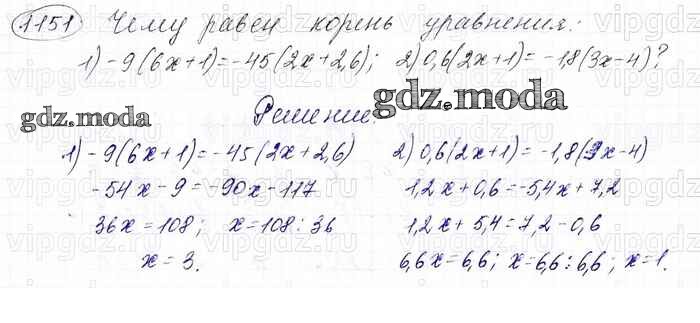 1151 Чему равен корень уравнения:
1) -9(6x+1)=-45(2x+2,6); 2) 0,6(2x+1)=-1,8(3x-4)?
gdz.moda gdz.moda
Решение.
1) -9(6x+1)=-45(2x+2,6) 2) 0,6(2x+1)=-1,8(3x-4)
-54x-9=-90x-117 1,2x+0,6=-5,4x+7,2
36x=108; x=108:36 1,2x+5,4=7,2-0,6
x=3. 6,6x=6,6; x=6,6:6,6; x=1.